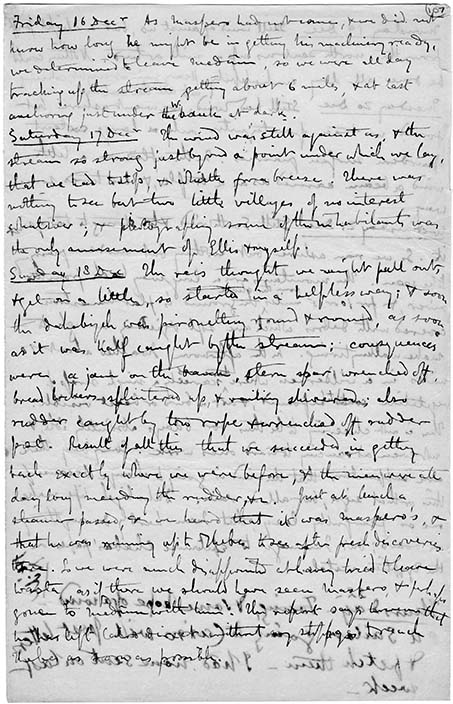 157
Friday 16 Decr As Maspero had not come, & we did not
know how long he might be in getting his machinery ready,
we determined to leave Medum, so we were all day
tracking up the stream, getting about 6 miles, & at last
anchoring just under the W. bank at dark.
Saturday 17 Decr The wind was still against us, & the
stream so strong just beyond a point under which we lay,
that we had to stop, & whistle for a breeze. There was
nothing to see but two little villages of no interest
whatever; & photographing some of the inhabitants was
the only amusement of Ellis & myself.
Sunday 18 Dec The reis thought we might pull out
& get on a little, so started in a helpless way; & soon
the dahabiyeh was pirouetting round & round as soon
as it was half caught by the stream; consequences
were, a jam on the bank, stern spar wrenched off,
bread lockers splintered up, & railing shivered; also
rudder caught by tow rope & wrenched off rudder
post. Result of all this that we succeeded in getting
back exactly where we were before, & the men were all
day long mending the rudder, &c. Just at lunch a
steamer passed, & we heard that it was Maspero's, &
that he was running up to Thebes to see after fresh discoveries
there. So we were much disappointed at having tried to leave
Wasta, as if there we should have seen Maspero &
gone to Medum with him. The report says
has left that
as possible.